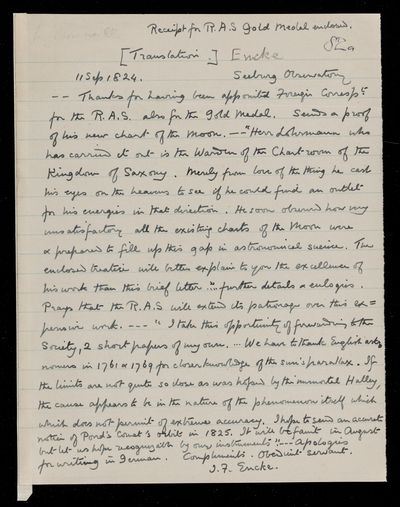 Receipt for R.A.S Gold Medal enclosed.
[Translation.] Encke
11 Sep 1824. Seeburg Observatory
-- Thanks for having been appointed Foreign Correspt
for the R.A.S. also for the Gold Medal. Sends a proof
of his new chart of the Moon. -- "Herr Lohrmann who
has carried it out is the Warden of the Chart room of the
Kingdom of Saxony. Merely from love of the thing he cast
his eyes on the heavens to see if he could find an outlet
for his energies in that direction. He soon observed how very
unsatisfactory all the existing charts of the Moon were
& prepared to fill up this gap in astronomical science. The
enclosed treatise will better explain to you the excellence of
his work than this brief letter ... further details & eulogies.
Prays that the R.A.S will extend its patronage over this ex=
pensive work. --- "I take this opportunity of forwarding to the
Society, 2 short papers of my own. ... We have to thank English astro
nomers in 1761 & 1769 for closer knowledge of the sun's parallax. If
the limits are not quite so close as was hoped by the immortal Halley,
the cause appears to be in the nature of the phenomenon itself which
which does not permit of extreme accuracy. I hope to send an accurate
notice of Pond's Comet's orbit in 1825. It will be faint in August
but let us hope recognizable by our instruments" --- Apologies
for writing in German. Compliments. Obedient servant.
J.F. Encke.